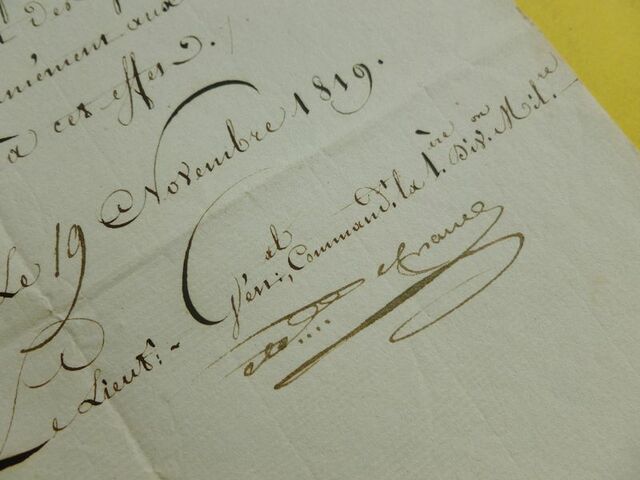 des
à cet effet d.
Le 19 Novembre 1819.
Le Lieut.^t Gén.^al Command.^t la 1.^ère Div.^on Mil.^re